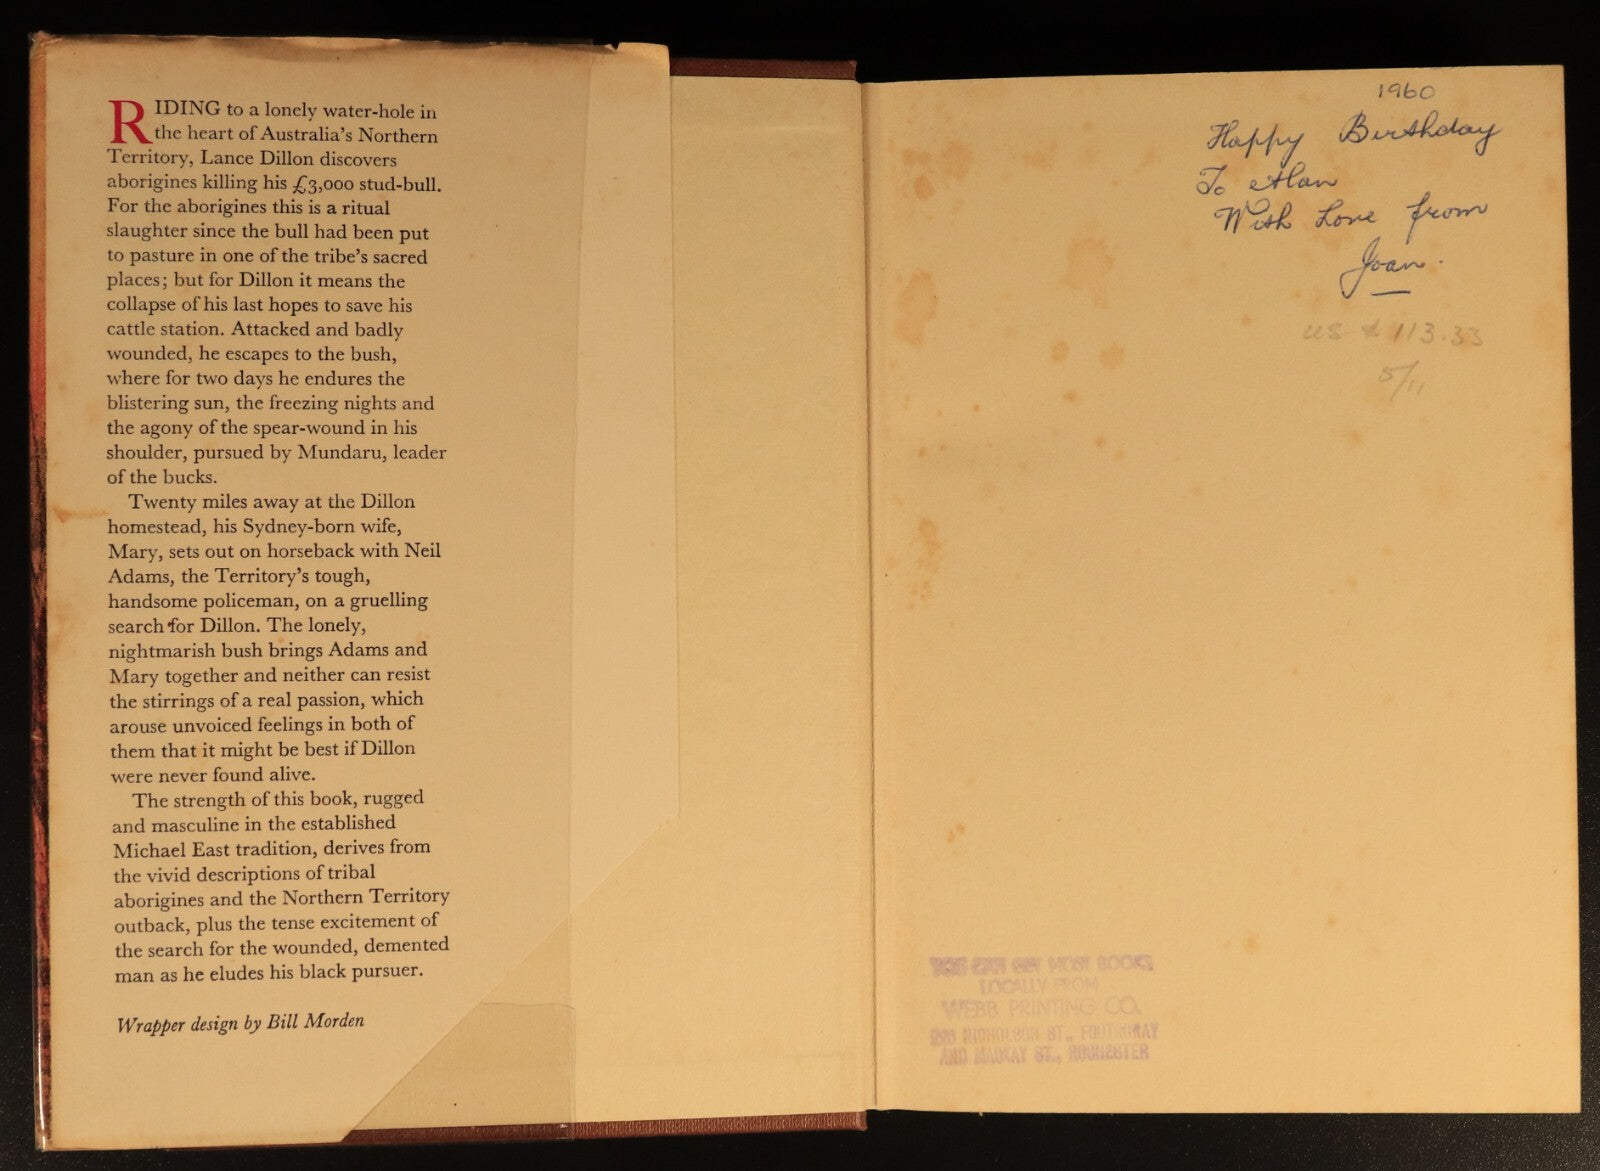 RIDING to a lonely water-hole in
the heart of Australia's Northern
Territory, Lance Dillon discovers
aborigines killing his £3,000 stud-bull.
For the aborigines this is a ritual
slaughter since the bull had been put
to pasture in one of the tribe's sacred
places; but for Dillon it means the
collapse of his last hopes to save his
cattle station. Attacked and badly
wounded, he escapes to the bush,
where for two days he endures the
blistering sun, the freezing nights and
the agony of the spear-wound in his
shoulder, pursued by Mundaru, leader
of the bucks.
Twenty miles away at the Dillon
homestead, his Sydney-born wife,
Mary, sets out on horseback with Neil
Adams, the Territory's tough,
handsome policeman, on a gruelling
search for Dillon. The lonely,
nightmarish bush brings Adams and
Mary together and neither can resist
the stirrings of a real passion, which
arouse unvoiced feelings in both of
them that it might be best if Dillon
were never found alive.
The strength of this book, rugged
and masculine in the established
Michael East tradition, derives from
the vivid descriptions of tribal
aborigines and the Northern Territory
outback, plus the tense excitement of
the search for the wounded, demented
man as he eludes his black pursuer.
Wrapper design by Bill Morden
1960
Happy Birthday
To Alan
With Love from
Joan.
US $ 113.33
5/11
YOU CAN GET MOST BOOKS
LOCALLY FROM
WEBB PRINTING CO.
NICHOLSON ST., FOOTSCRAY
AND MACKAY ST., ROCHESTER